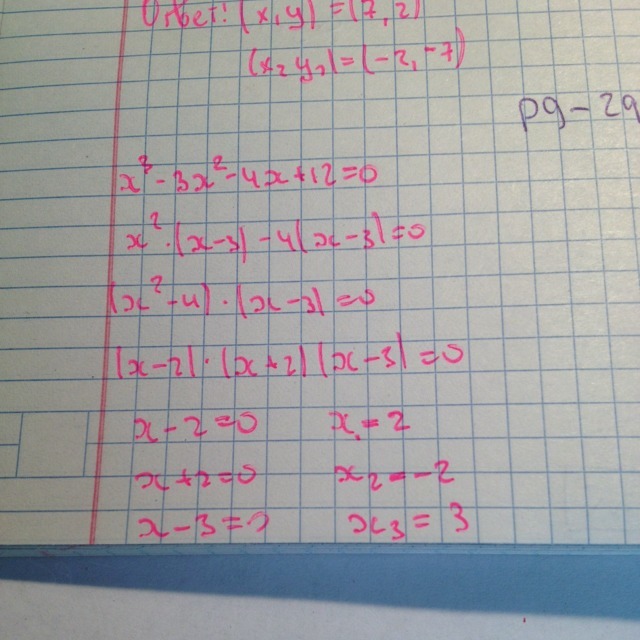 Ответ: (x, y) = (7, 2)
(x₂ y₂) = (-2, -7)
pg - 29
x³ - 3x² - 4x + 12 = 0
x² · (x-3) - 4(x-3) = 0
(x² - 4) · (x - 3) = 0
(x-2) · (x+2) (x-3) = 0
x - 2 = 0 x₁ = 2
x + 2 = 0 x₂ = -2
x - 3 = 0 x₃ = 3